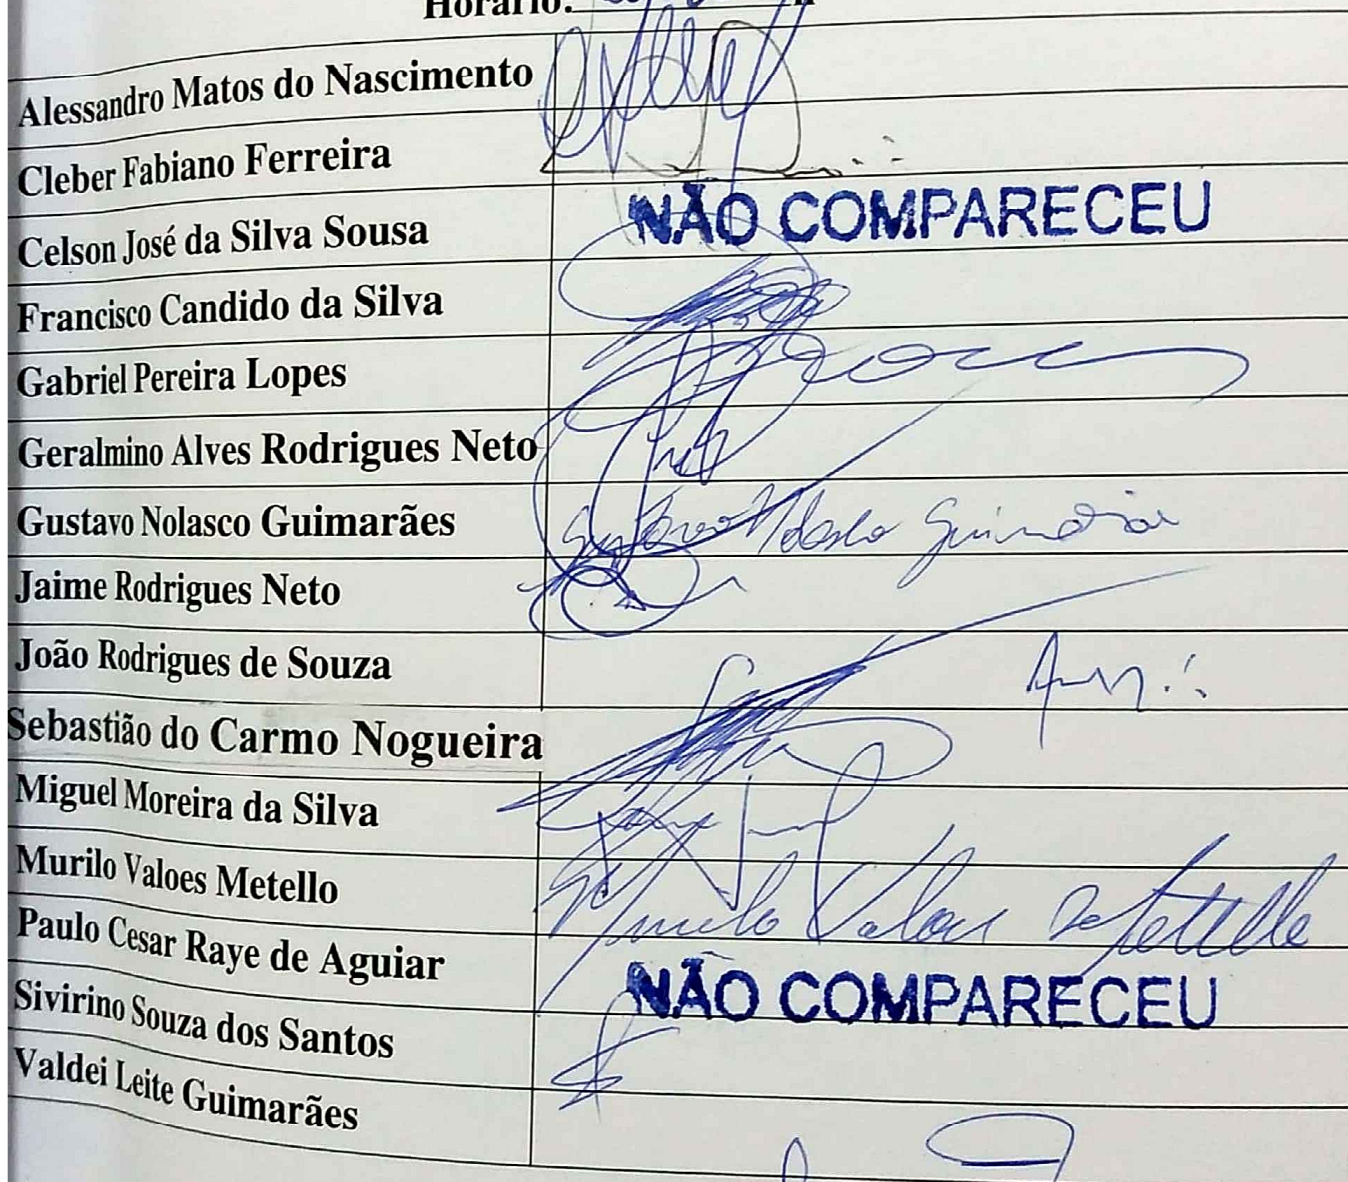 Horário:
Alessandro Matos do Nascimento
Cleber Fabiano Ferreira
Celson José da Silva Sousa NÃO COMPARECEU
Francisco Candido da Silva
Gabriel Pereira Lopes
Geralmino Alves Rodrigues Neto
Gustavo Nolasco Guimarães Gustavo Nolasco Guimarães
Jaime Rodrigues Neto
João Rodrigues de Souza
Sebastião do Carmo Nogueira
Miguel Moreira da Silva
Murilo Valoes Metello Murilo Valoes Metello
Paulo Cesar Raye de Aguiar NÃO COMPARECEU
Sivirino Souza dos Santos
Valdei Leite Guimarães